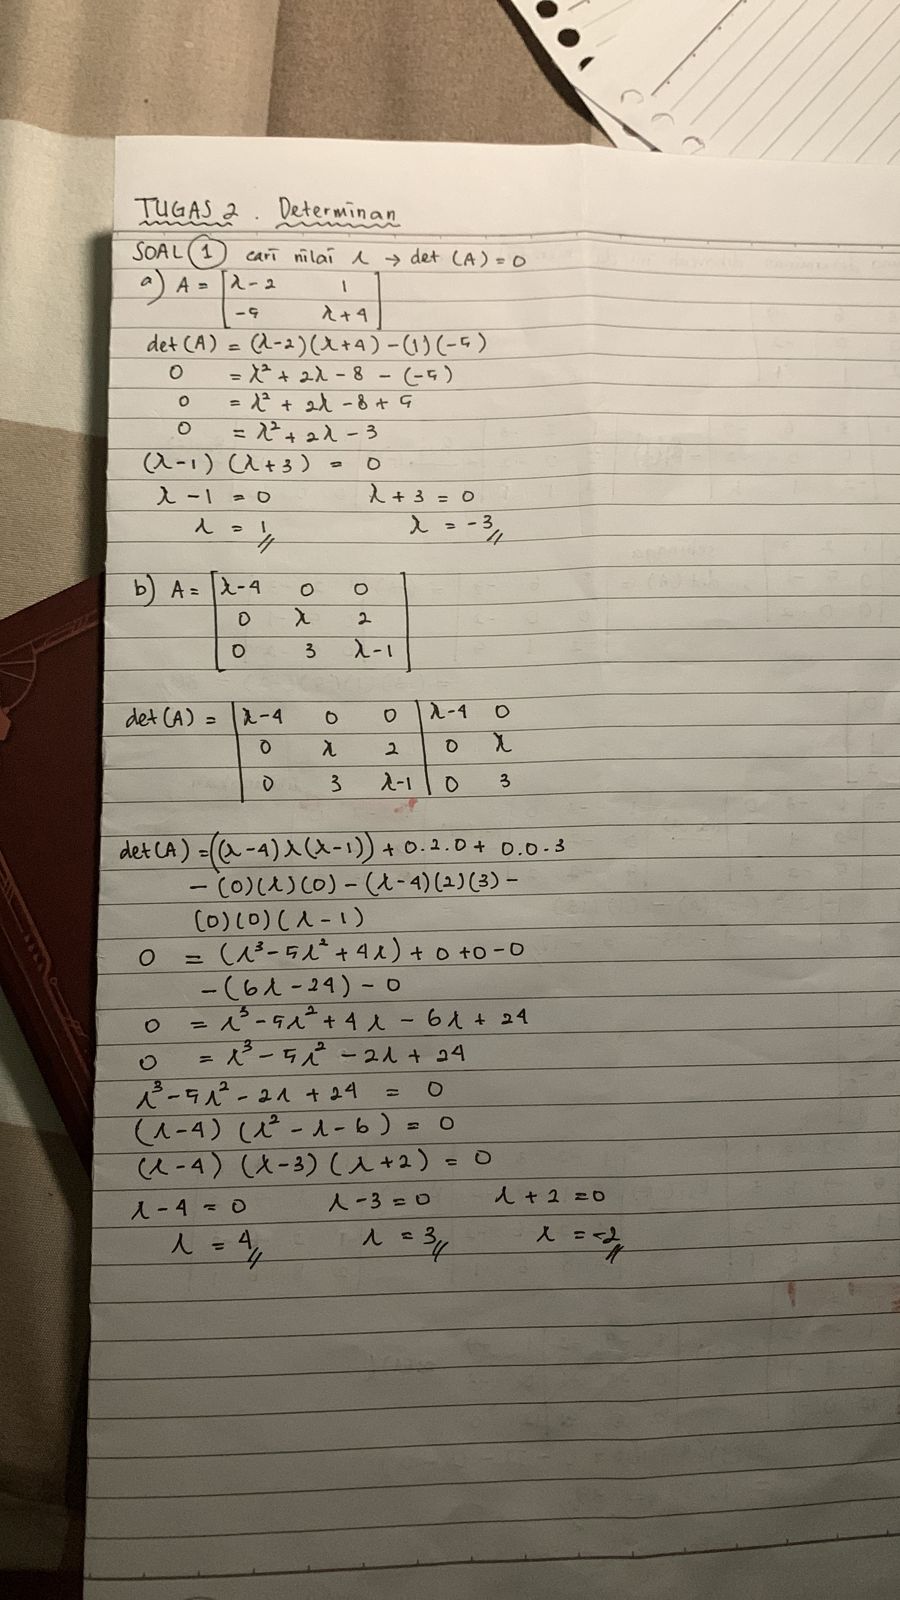 TUGAS 2. Determinan
SOAL 1 cari nilai λ → det (A) = 0
a) A = [λ-2 1
-5 λ+4]
det (A) = (λ-2)(λ+4) - (1)(-5)
0 = λ² + 2λ - 8 - (-5)
0 = λ² + 2λ - 8 + 5
0 = λ² + 2λ - 3
(λ-1) (λ+3) = 0
λ - 1 = 0 λ + 3 = 0
λ = 1 // λ = -3 //
b) A = [λ-4 0 0
0 λ 2
0 3 λ-1]
det (A) = |λ-4 0 0 | λ-4 0
0 λ 2 | 0 λ
0 3 λ-1 | 0 3
det (A) = ((λ-4) λ (λ-1)) + 0.2.0 + 0.0.3
- (0)(λ)(0) - (λ-4)(2)(3) -
(0)(0)(λ-1)
0 = (λ³ - 5λ² + 4λ) + 0 + 0 - 0
- (6λ - 24) - 0
0 = λ³ - 5λ² + 4λ - 6λ + 24
0 = λ³ - 5λ² - 2λ + 24
λ³ - 5λ² - 2λ + 24 = 0
(λ-4) (λ² - λ - 6) = 0
(λ-4) (λ-3) (λ+2) = 0
λ - 4 = 0 λ - 3 = 0 λ + 2 = 0
λ = 4 // λ = 3 // λ = -2 //